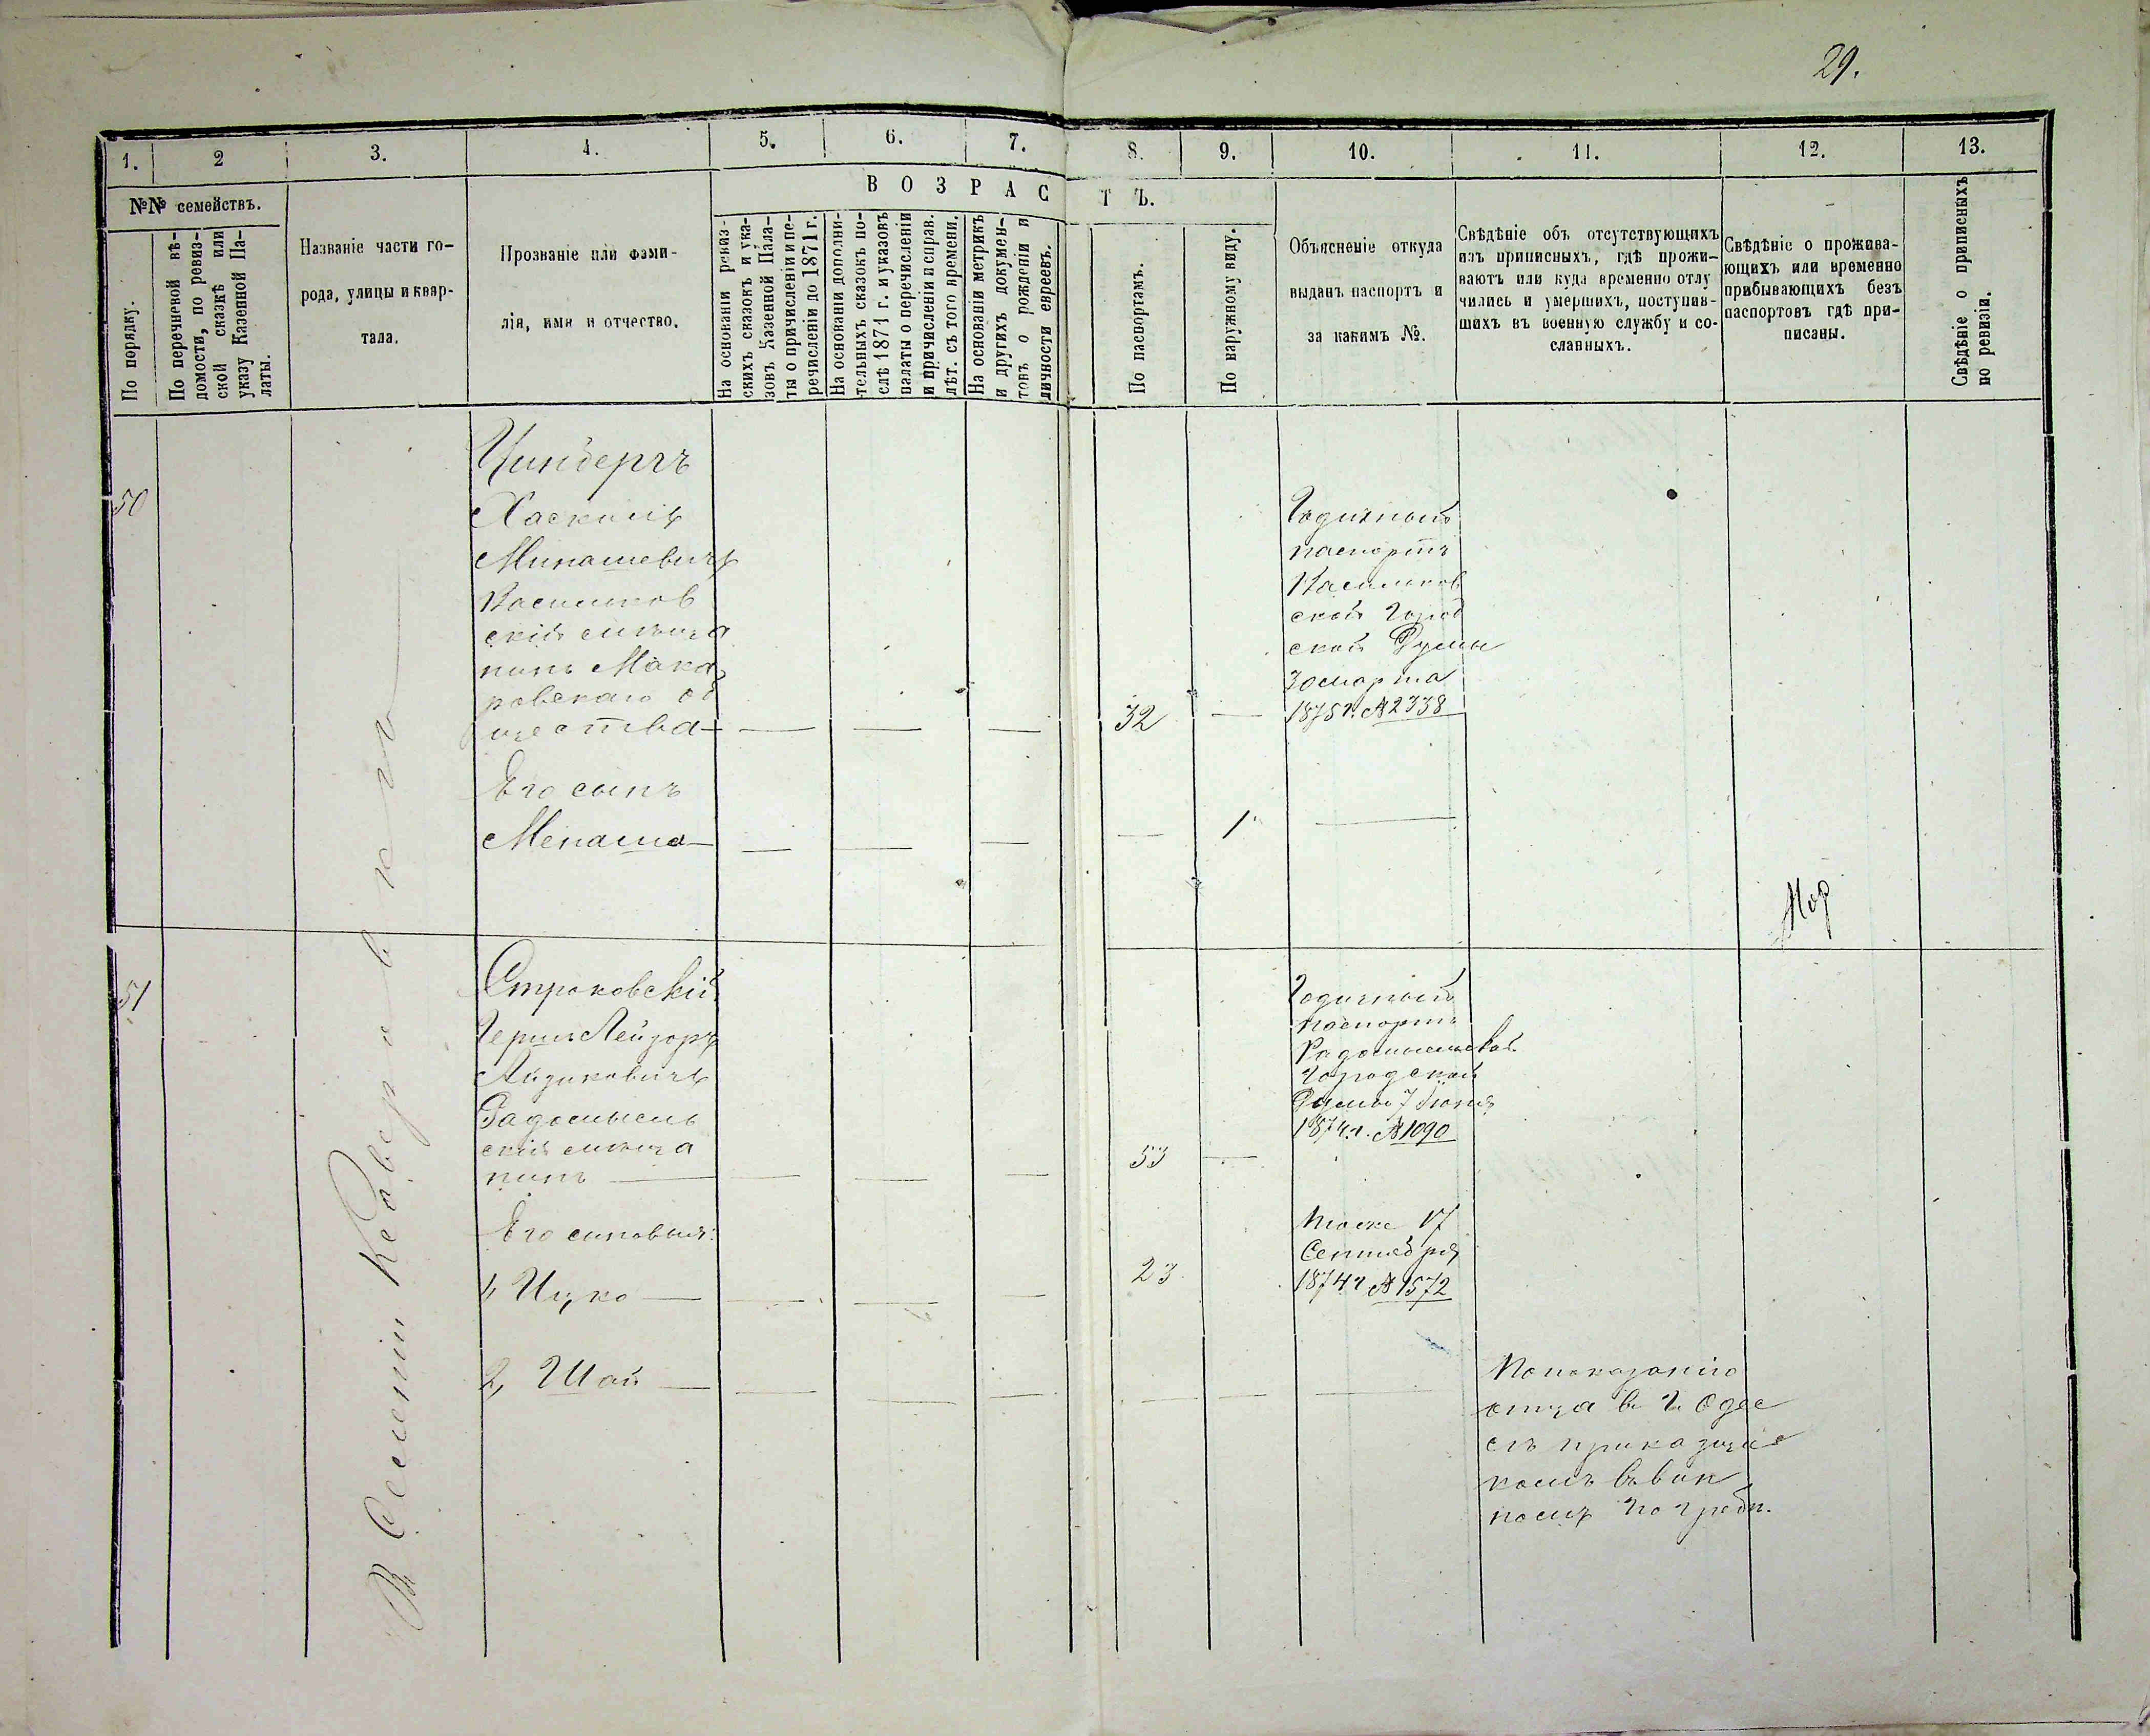 29.
1.
2
3.
4.
5.
6.
7.
8.
9.
10.
11.
12.
13.
№№ семействъ.
По порядку.
По перечневой вѣ-
домости, по ревиз-
ской сказкѣ или
указу Казенной Па-
латы.
Названіе части го-
рода, улицы и квар-
тала.
Прозваніе или фами-
лія, имя и отчество.
ВОЗРАСТЪ.
На основаніи ревиз-
скихъ сказокъ и ука-
зовъ Казенной Пала-
ты о причисленіи и пе-
речисленіи до 1871 г.
На основаніи дополни-
тельныхъ сказокъ по-
слѣ 1871 г. и указовъ
палаты о перечисленіи
и причисленіи исправ.
лѣт. съ того времени.
На основаніи метрикъ
и другихъ докумен-
товъ о рожденіи и
личности евреевъ.
По паспортамъ.
По наружному виду.
Объясненіе откуда
выданъ паспортъ и
за какимъ №.
Свѣдѣніе объ отсутствующихъ
изъ приписныхъ, гдѣ прожи-
ваютъ или куда временно отлу
чились и умершихъ, поступив-
шихъ въ военную службу и со-
сланныхъ.
Свѣдѣніе о прожива-
ющихъ или временно
прибывающихъ безъ
паспортовъ гдѣ при-
писаны.
Свѣдѣніе о приписныхъ
по ревизіи.
50
Цинбергъ
Хаскиль
Минашевичъ
Васильков
скій мѣща
нинъ Мака
ровскаго об
щества
32
Годичный
паспортъ
Васильков
ской Город
ской Думы
30 марта
1875 г. № 2338
Его сынъ
Менаша
1
51
Строковскій
Герш Лейзоръ
Айзиковичъ
Радомысль
скій мѣща
нинъ
53
Годичный
паспортъ
Радомысльской
Городской
Думы 7 Іюня
1874 г. № 1090
Его сыновья:
1, Ицко
23
тоже 17
Сентября
1874 г № 1572
2, Шай
По показанію
отца в г. Одес
сѣ приказщи
комъ въ вин
номъ погребѣ.
В Селеніи